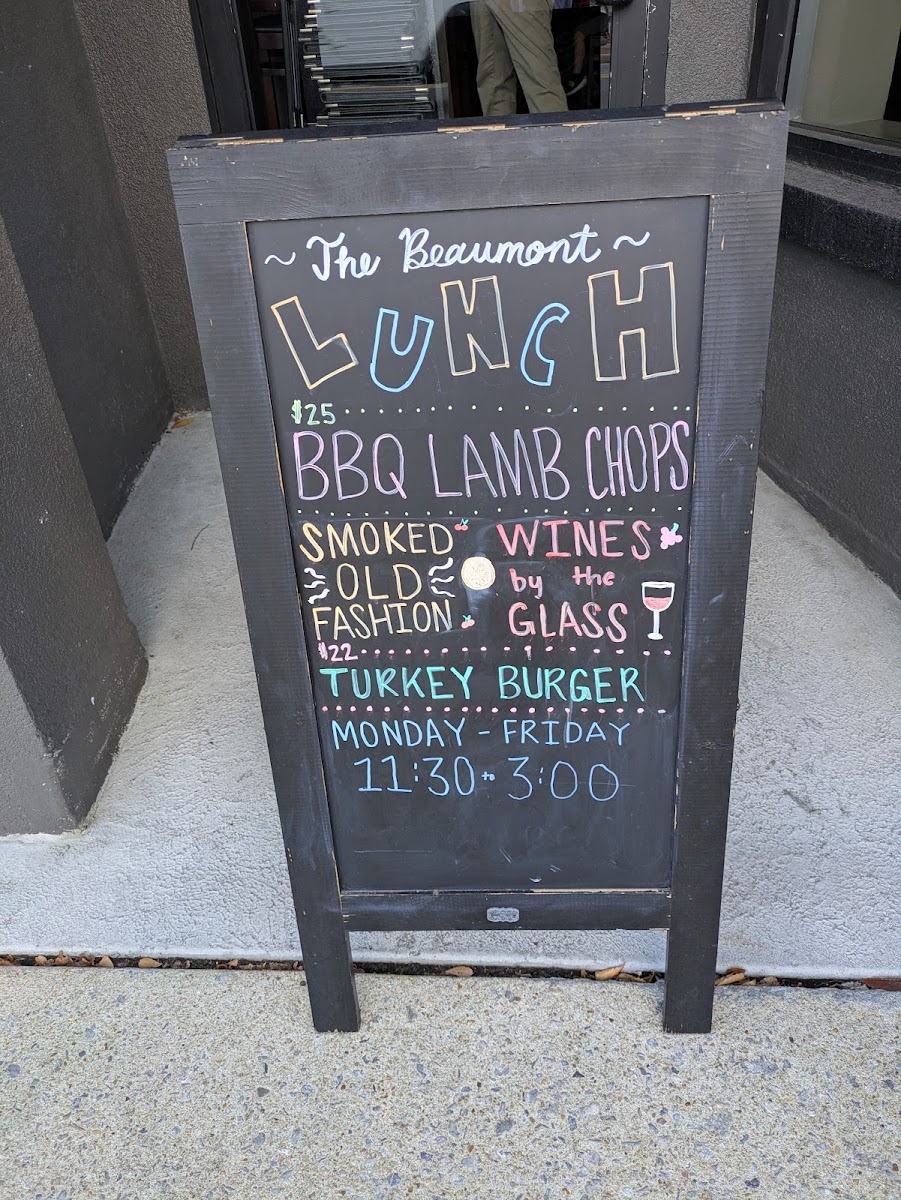 ~ The Beaumont ~
LUNCH
$25
BBQ LAMB CHOPS
SMOKED
OLD
FASHION
WINES
by the
GLASS
$22
TURKEY BURGER
MONDAY - FRIDAY
11:30 to 3:00